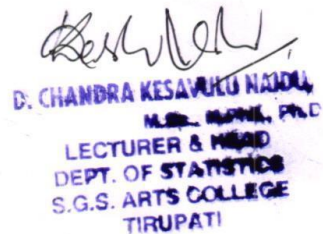 D. CHANDRA KESAVULU NAIDU,
M.Sc., M.PHIL, Ph.D
LECTURER & HEAD
DEPT. OF STATISTICS
S.G.S. ARTS COLLEGE
TIRUPATI